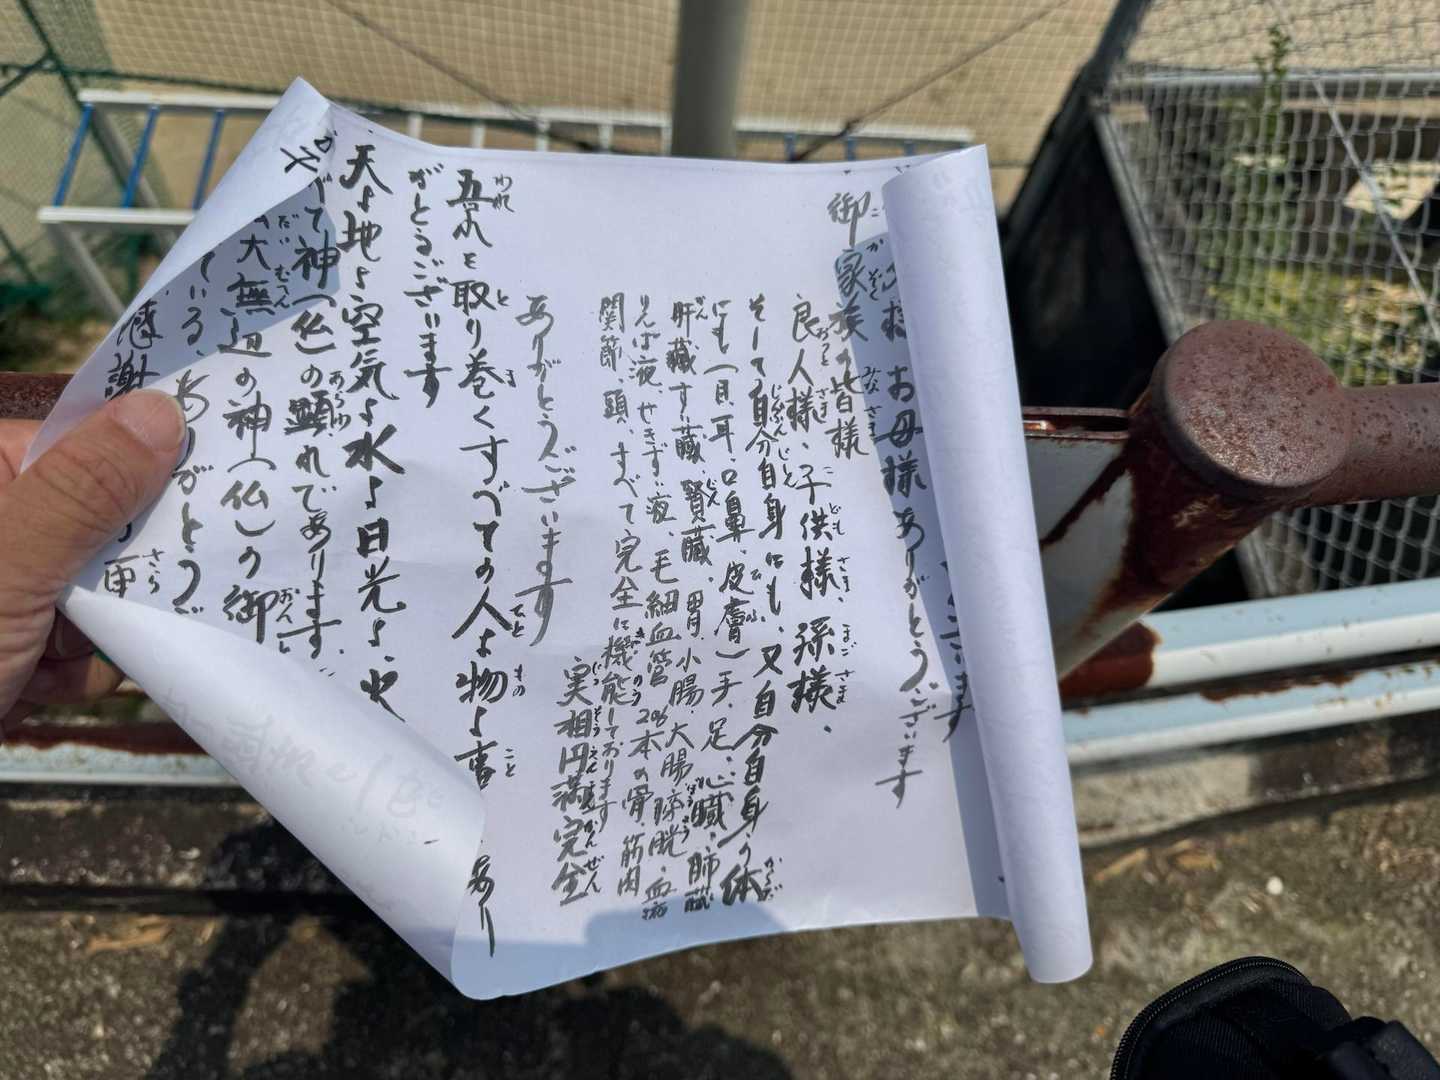 お母様ありがとうございます
御家族の皆様
良人様、子供様、孫様、
そして自分自身にも、又自分自身の体
にも(目、耳、口鼻、皮膚)手、足、心臓、肺臓
肝臓すい臓、腎臓、胃、小腸、大腸膀胱、血液
りんぱ液、せきずい液、毛細血管
関節、頭、すべて完全に機能しております
実相円満完全
ありがとうございます
吾れを取り巻くすべての人よ物よ事よ
あり
がとうございます
天よ地よ空気よ水よ日光よ火
すべて神(仏)の顕れであります
大無辺の神(仏)の御
ている、ありがとうご
感謝